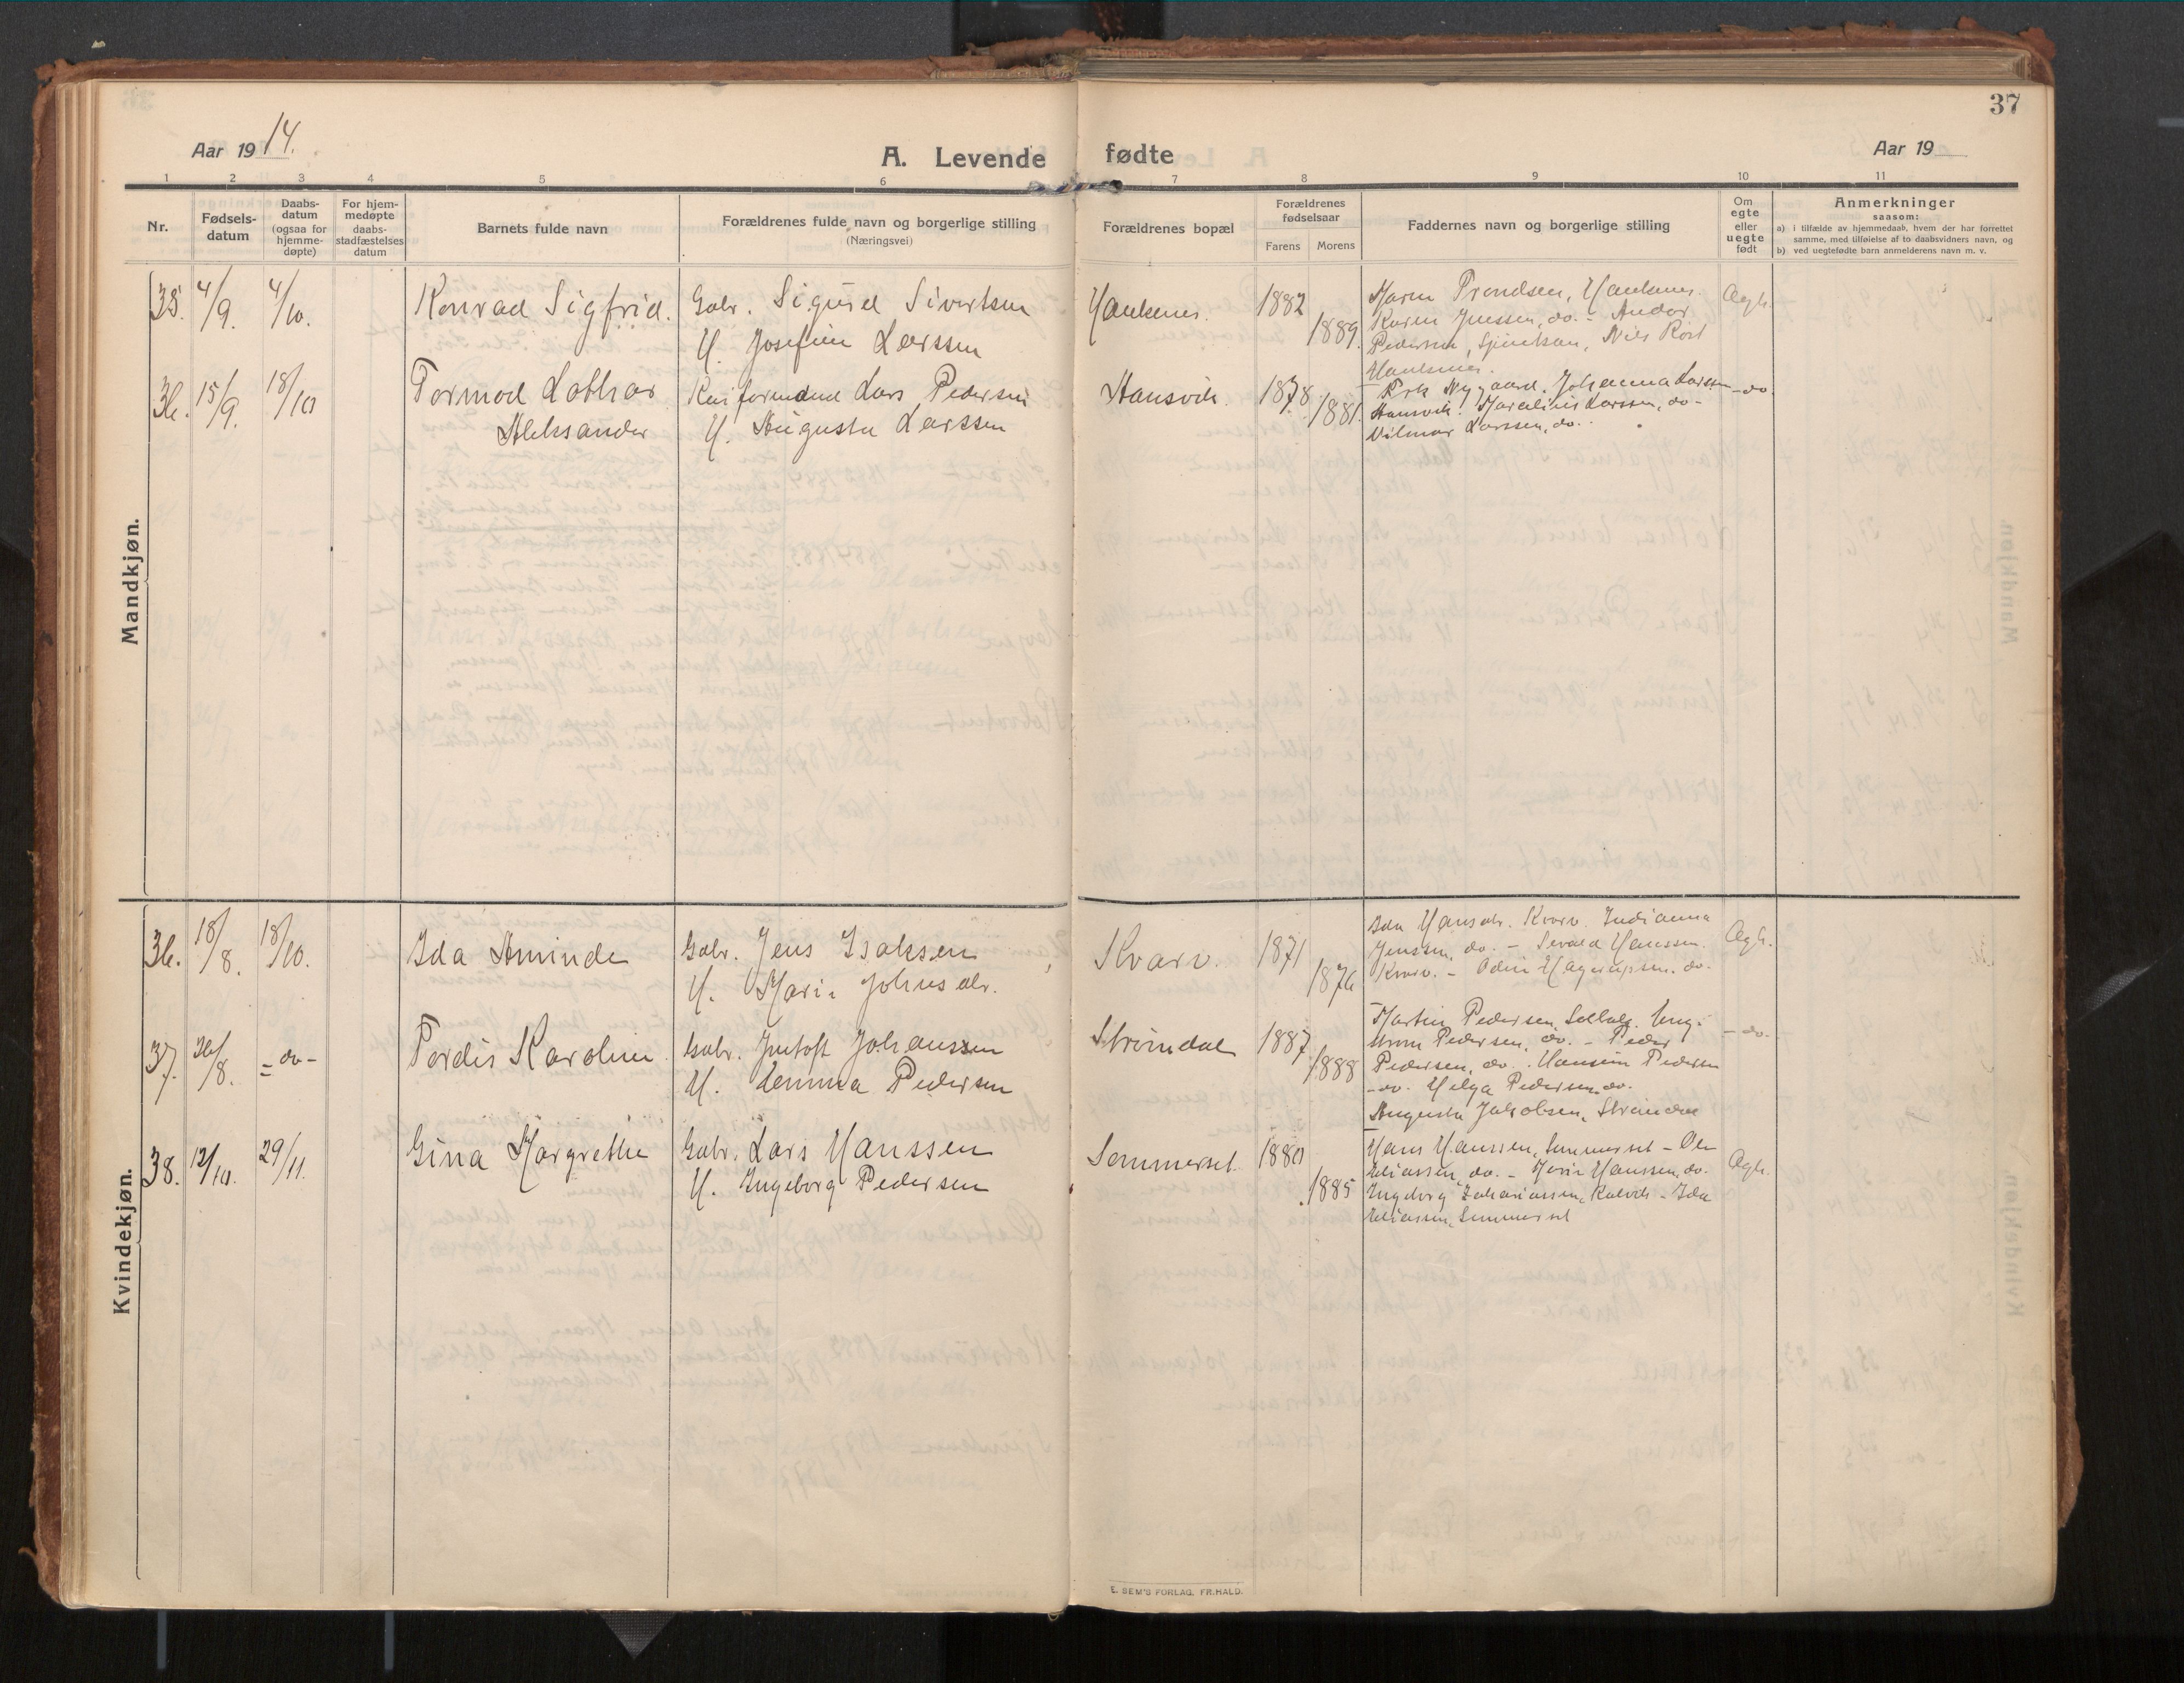 37
Aar 1914.
A. Levende fødte
Aar 19
1 2 3 4 5 6 7 8 9 10 11
Nr.
Fødsels-
datum
Daabs-
datum
(ogsaa for
hjemme-
døpte)
For hjem-
medøpte
daabs-
stadfæstelses
datum
Barnets fulde navn
Forældrenes fulde navn og borgerlige stilling
(Næringsvei)
Forældrenes bopæl
Forældrenes
fødselsaar
Farens Morens
Faddernes navn og borgerlige stilling
Om
egte
eller
uegte
født
Anmerkninger
saasom:
a) i tilfælde av hjemmedaab, hvem der har forrettet
samme, med tilføielse af to daabsvidners navn, og
b) ved uegtefødte barn anmelderens navn m. v.
Mandkjøn.
35. 4/9. 4/10. Konrad Sigfrid.
Gabr. Sigurd Sivertsen
H. Josefine Larssen
Haukenes. 1882
1889.
Maren Trondsen, Haukenes.
Karen Jenssen, do. - Andor
Pedersen, Nils Rost
Haukenes.
Ægh.
36. 15/9. 18/10 Tormod Lothar
Aleksander
Lars Pedersen
H. Augusta Larssen
Hansvik. 1878
1881.
Nygaard. Johanna Larssen
Hansvik. Larssen, do -
Vilmar Larssen, do.
- do.
Kvindekjøn.
36. 18/8. 18/10. Ida Aminde
Gabr. Jens Isaksen
H. Mari Johnsdr.
Kvarv. 1871
1876
Ida Hansdr. Kvarv. Indianna
Jenssen, do. - Sevald Hanssen.
Kvarv. - Odin Hagerupsen. do.
Ægh.
37. 26/8. - do - Tordis Karoline
Gabr. Jentoft Johanssen
H. Emma Pedersen
Strömdal 1887
1888
Martin Pedersen,
Pedersen, do. - Peder
Pedersen, do. Hansine Pedersen
- do. Helga Pedersen do.
Augusta Jakobsen, Strömdal
- do.
38. 12/10. 29/11. Gina Margrethe
Gabr. Lars Hanssen
H. Ingeborg Pedersen
Sommerset. 1880
1885
Hans Hanssen, Sommerset - Ole
Eliassen, do. - Marie Hanssen, do.
Ingeborg Zakariassen, Kalvik - Ida
Eliassen, Sommerset
Ægh.
E. SEM'S FORLAG. FR.HALD.